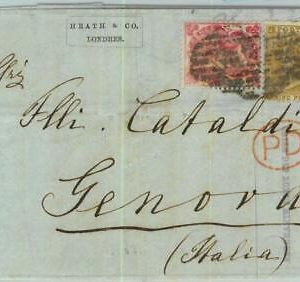 HEATH & CO.
LONDRES.
Flli. Cataldi
Genova
(Italia)
PD